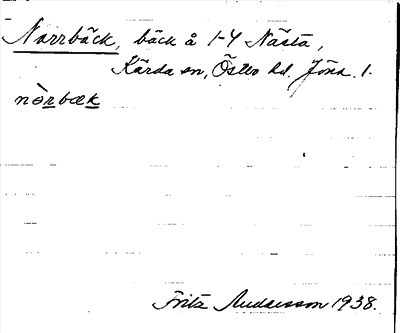 Norrbäck, bäck å 1-4 Nästa,
Kärda sn, Östbo hd. Jönk. l.
nòrbæk
Fritz Andersson 1938.